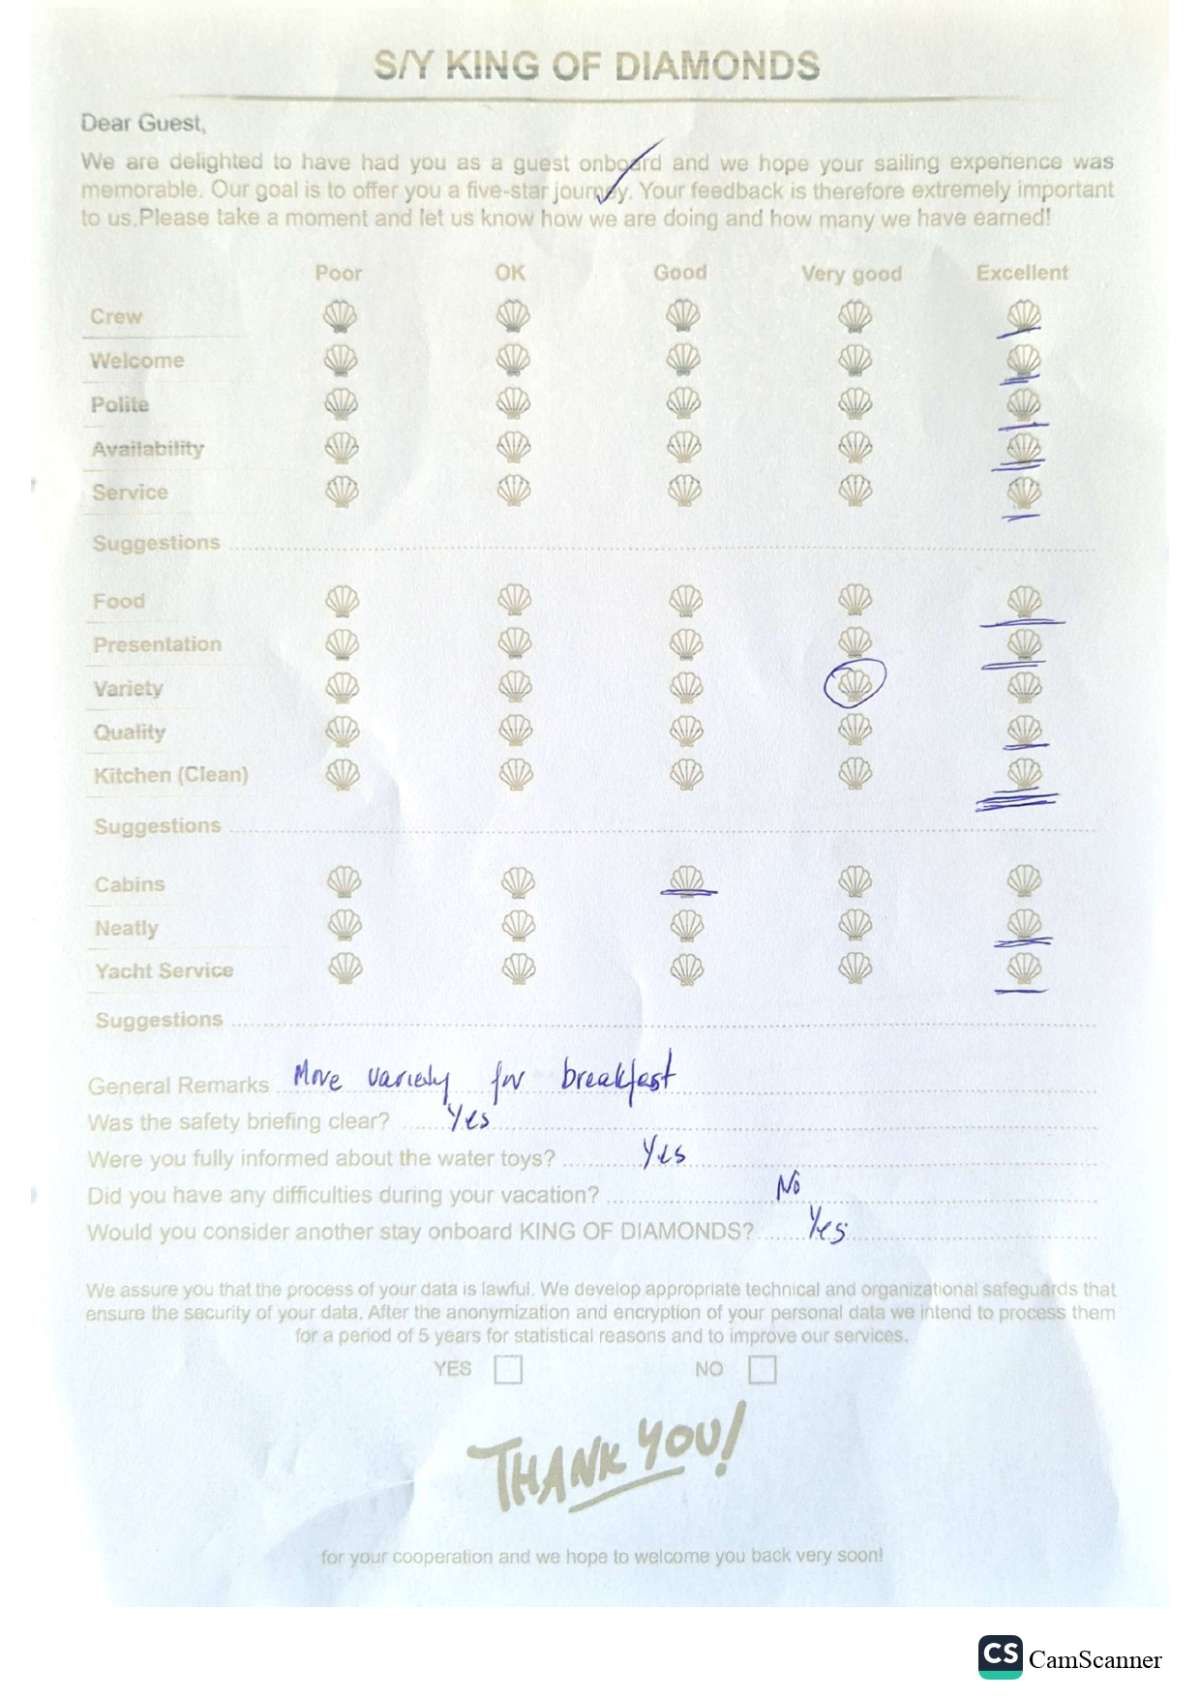 S/Y KING OF DIAMONDS
Dear Guest,
We are delighted to have had you as a guest onboard and we hope your sailing experience was
memorable. Our goal is to offer you a five-star journey. Your feedback is therefore extremely important
to us.Please take a moment and let us know how we are doing and how many we have earned!
Poor OK Good Very good Excellent
Crew
Welcome
Polite
Availability
Service
Suggestions
Food
Presentation
Variety
Quality
Kitchen (Clean)
Suggestions
Cabins
Neatly
Yacht Service
Suggestions
General Remarks More variety for breakfast
Was the safety briefing clear? Yes
Were you fully informed about the water toys? Yes
Did you have any difficulties during your vacation? No
Would you consider another stay onboard KING OF DIAMONDS? Yes
We assure you that the process of your data is lawful. We develop appropriate technical and organizational safeguards that
ensure the security of your data. After the anonymization and encryption of your personal data we intend to process them
for a period of 5 years for statistical reasons and to improve our services.
YES NO
THANK YOU!
for your cooperation and we hope to welcome you back very soon!
CS CamScanner